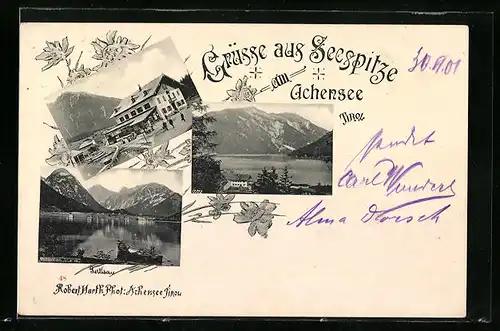 Grüsse aus Seespitze
am
Achensee
Tirol
30.VI.01
sendet
Carl Wunderl
Alma Dorsch
Pertisau
Robert Warth, Phot: Achensee Tirol